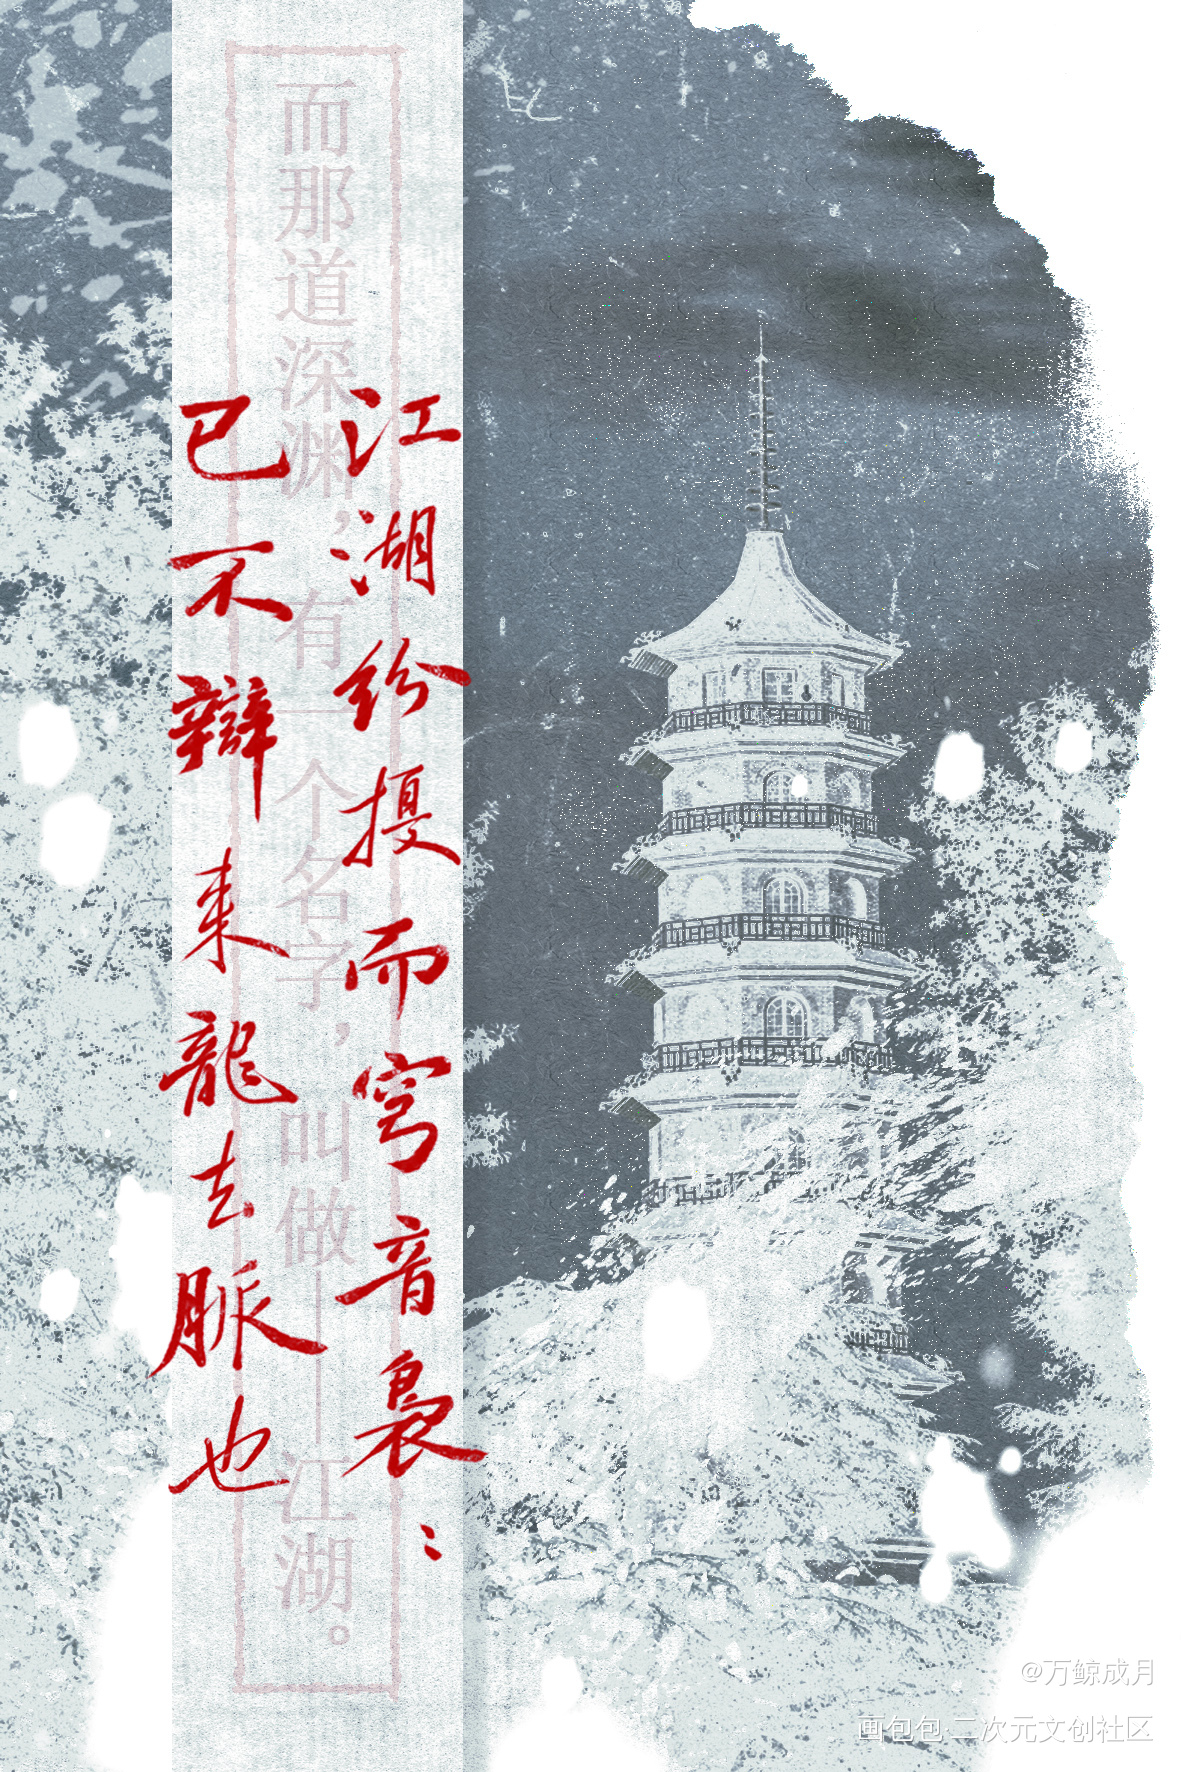 江湖纷擾而穹音裊：
已不辯来龍去脈也
而那道深渊，有一个名字，叫做——江湖。
@万鲸成月
画包包·二次元文创社区